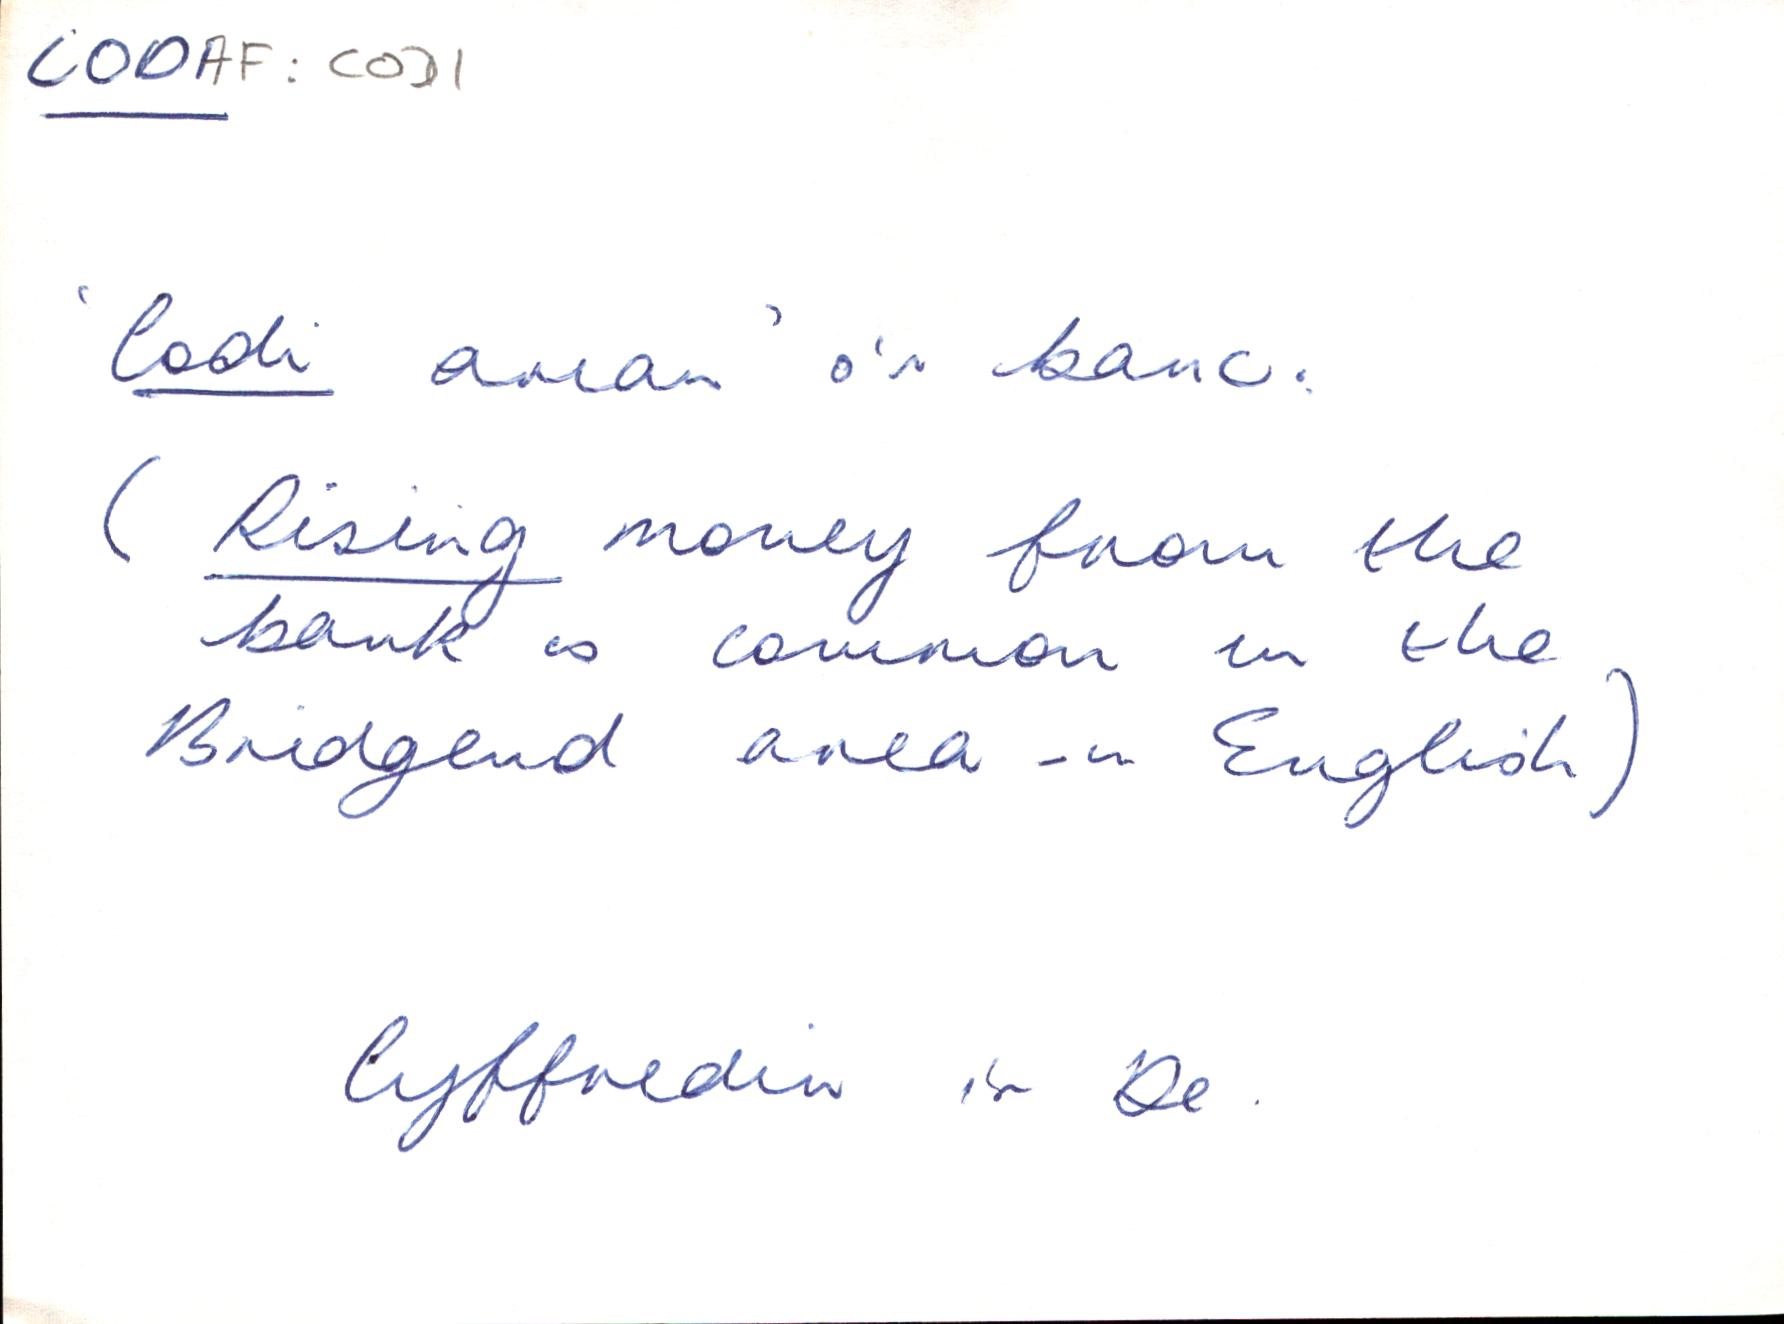 CODAF: CODI
'Codi arian' o'r banc.
(Rising money from the
bank is common in the
Bridgend area in English)
Cyffredin i'r De.